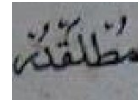 مُطَلَّقَةٌ